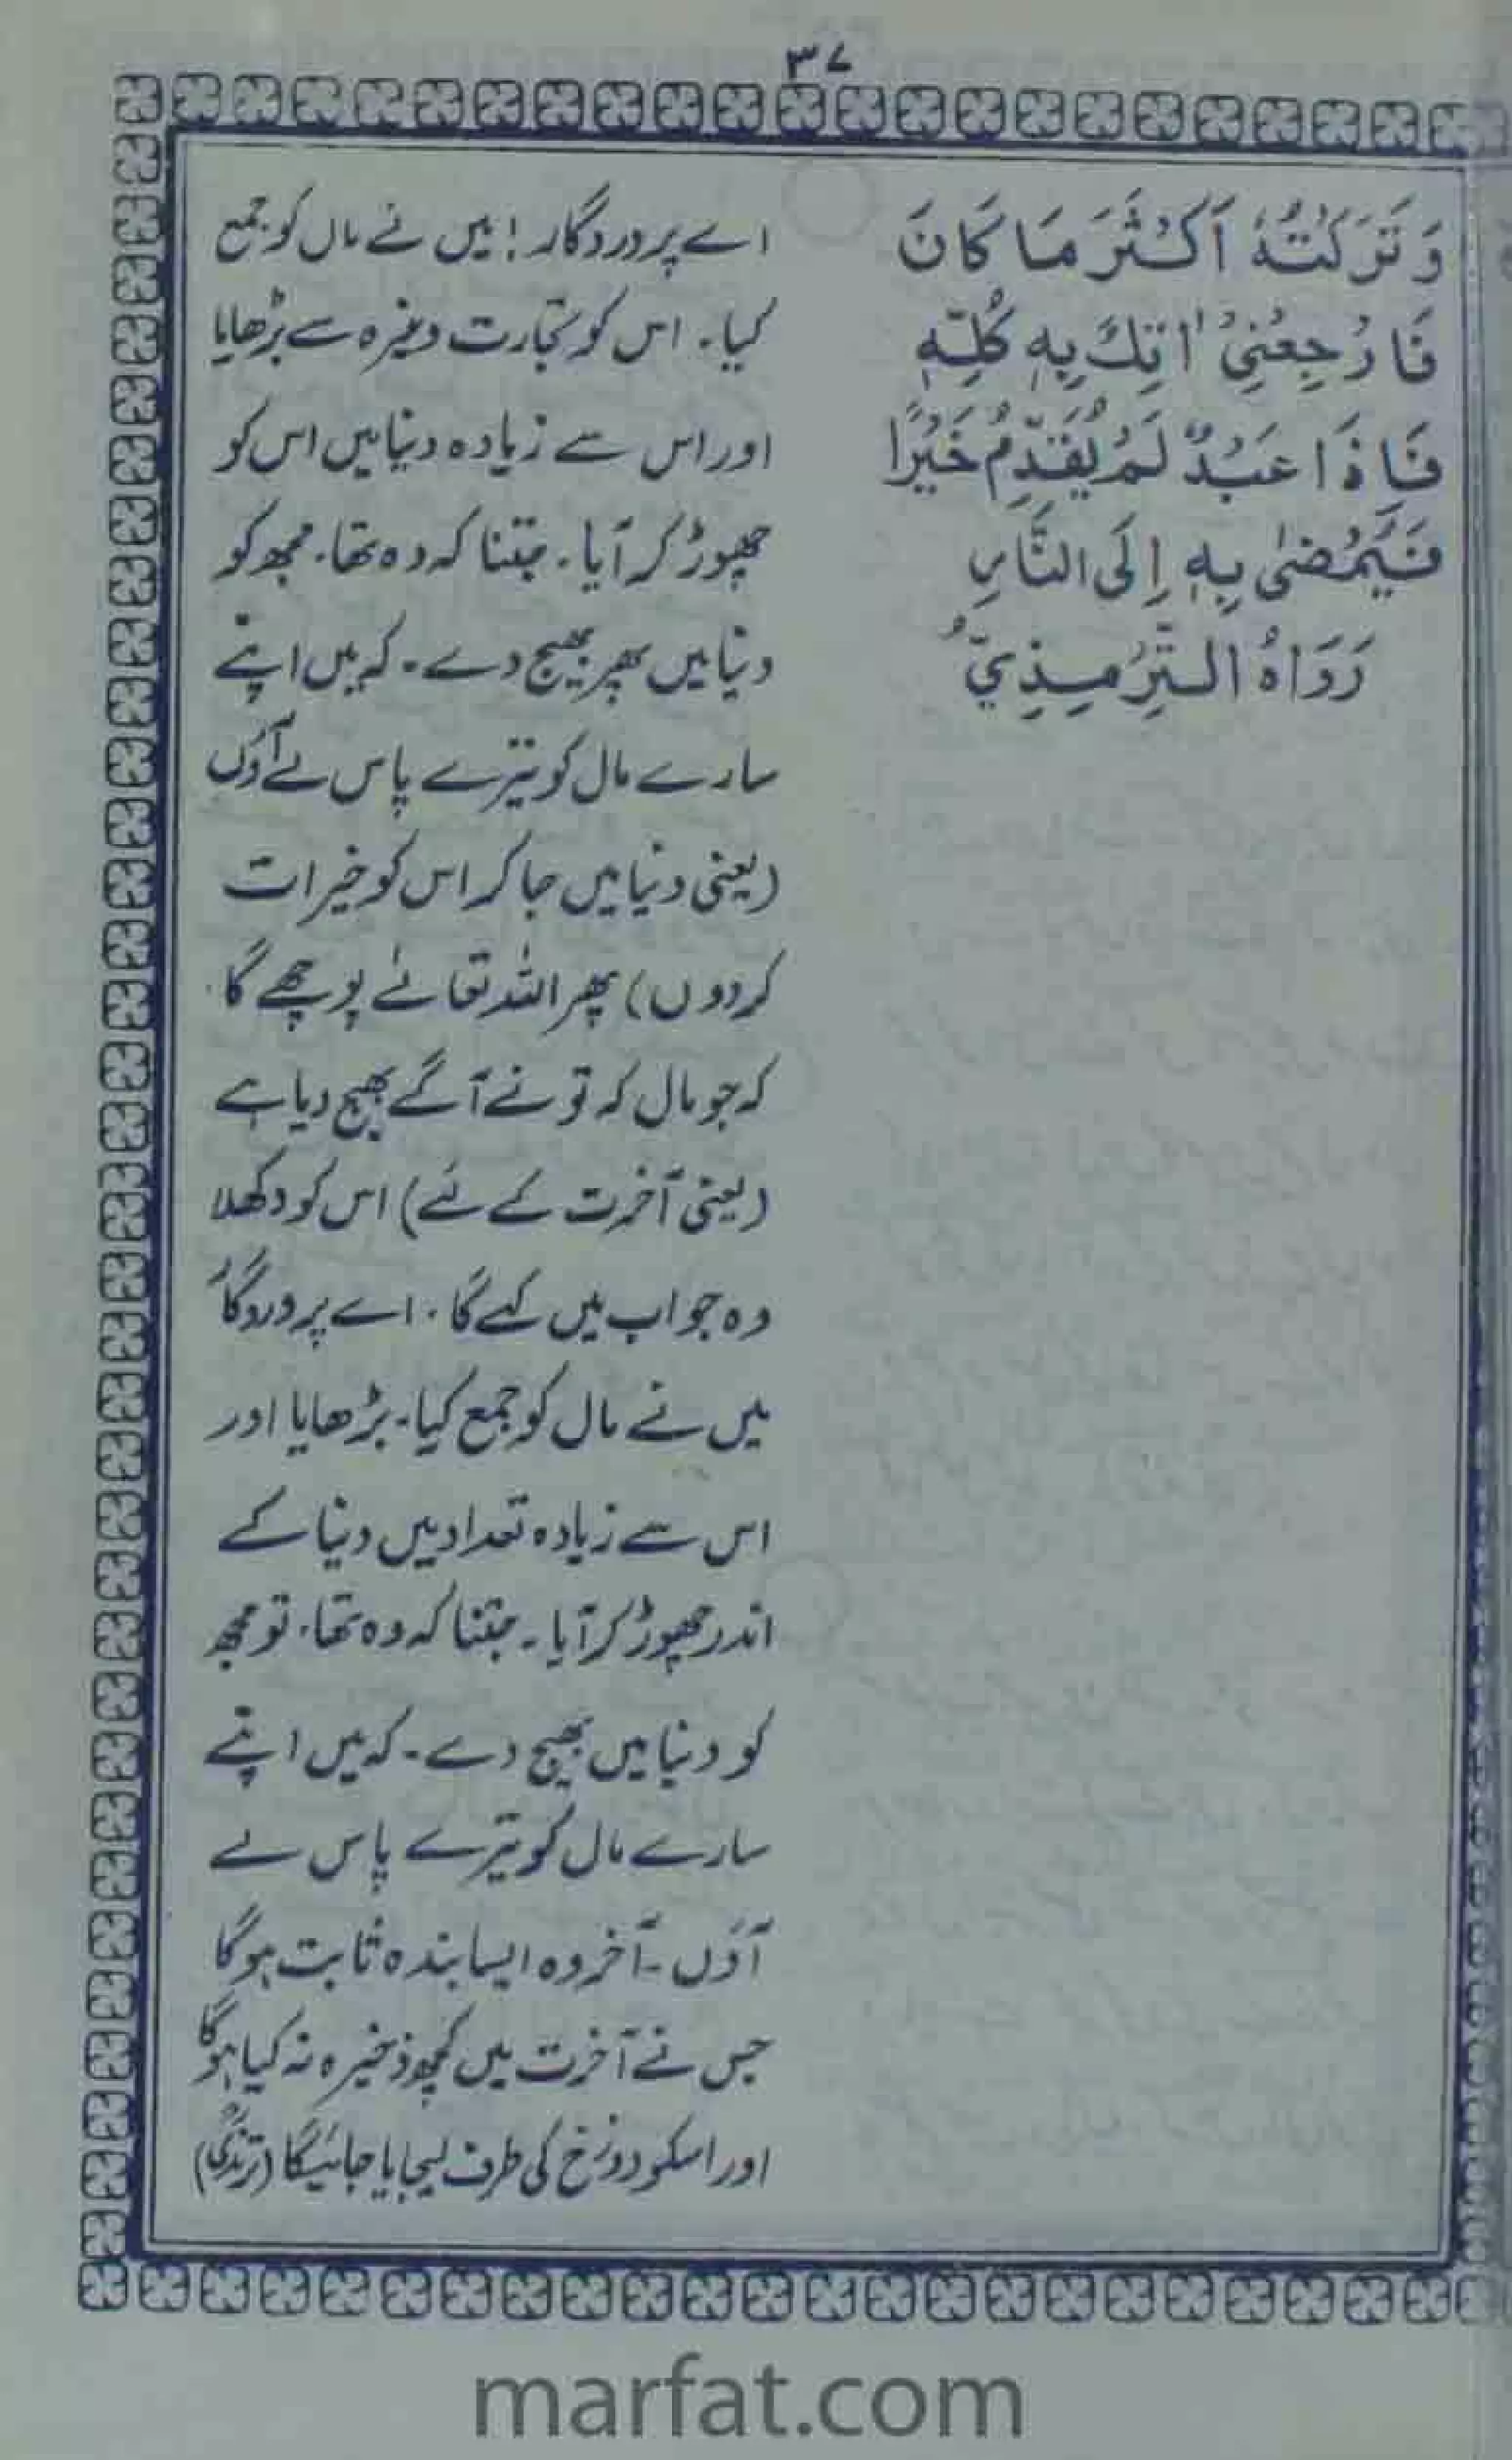 ۳۷
وَتَرَكْتُهٗ اَكْثَرَ مَا كَانَ
فَارْجِعْنِیْ اٰتِكَ بِهٖ كُلِّهٖ
فَاِذَا عَبْدٌ لَمْ یُقَدِّمْ خَیْرًا
فَیُمْضٰی بِهٖ اِلَی النَّارِ
رَوَاهُ التِّرْمِذِیُّ
اے پروردگار! میں نے مال کو جمع
کیا۔ اس کو تجارت وغیرہ سے بڑھایا
اور اس سے زیادہ دنیا میں اس کو
چھوڑ کر آیا۔ جتنا کہ وہ تھا۔ مجھ کو
دنیا میں پھر بھیج دے۔ کہ میں اپنے
سارے مال کو تیرے پاس لے آؤں
(یعنی دنیا میں جا کر اس کو خیرات
کردوں) پھر اللہ تعالےٰ پوچھے گا۔
کہ جو مال کہ تو نے آگے بھیج دیا ہے
(یعنی آخرت کے لئے) اس کو دکھلا
وہ جواب میں کہے گا۔ اے پروردگار
میں نے مال کو جمع کیا۔ بڑھایا اور
اس سے زیادہ تعداد میں دنیا کے
اندر چھوڑ کر آیا۔ جتنا کہ وہ تھا۔ تو مجھ
کو دنیا میں بھیج دے۔ کہ میں اپنے
سارے مال کو تیرے پاس لے
آؤں۔ آخر وہ ایسا بندہ ثابت ہوگا
جس نے آخرت میں کچھ ذخیرہ نہ کیا ہوگا
اور اسکو دوزخ کی طرف لیجایا جائیگا (ترمذی)
marfat.com